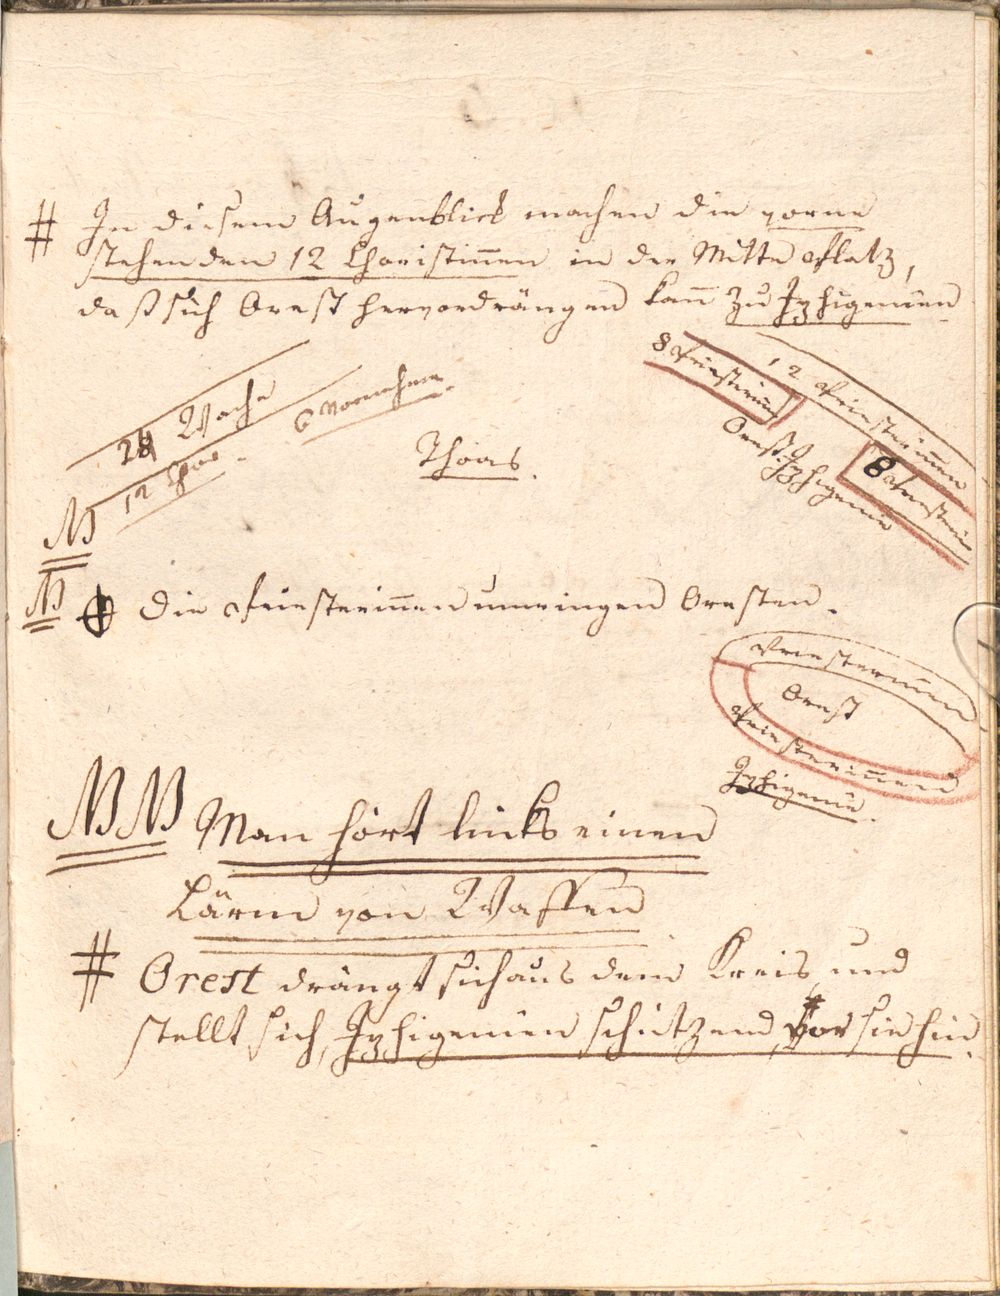 # In diesem Augenblick machen die vorne
stehenden 12 Choristinnen in der Mitte Platz,
daß sich Orest hervordrängen kann zu Iphigenien.
24 Wache
6 Vornehme.
12 Chor.
Thoas.
8 Priesterinnen
12 Priesterinnen
Orest. Iphigenie
8 Priesterin
NB
NB # Die Priesterinnen umringen Oresten.
Priesterinnen
Orest
Priesterinnen
Iphigenie.
NB NB Man hört links einen
Lärm von Waffen
# Orest drängt sich aus dem Kreis, und
stellt sich, Iphigenien schützend, # vor sie hin.